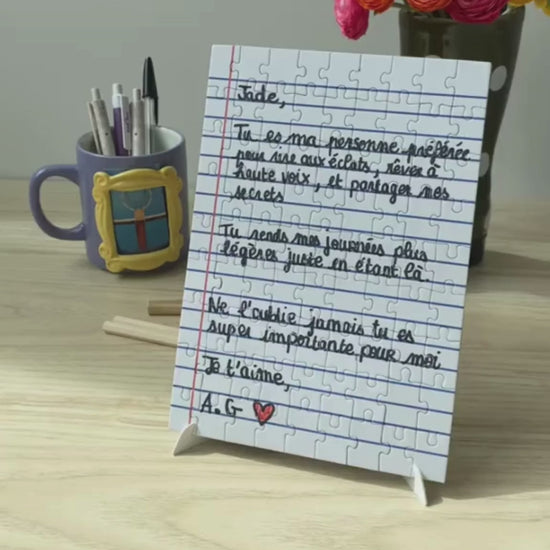 Jade,
Tu es ma personne préférée
pour rire aux éclats, rêver à
haute voix, et partager mes
secrets
Tu rends mes journées plus
légères juste en étant là.
Ne l'oublie jamais tu es
super importante pour moi
Je t'aime,
A.G